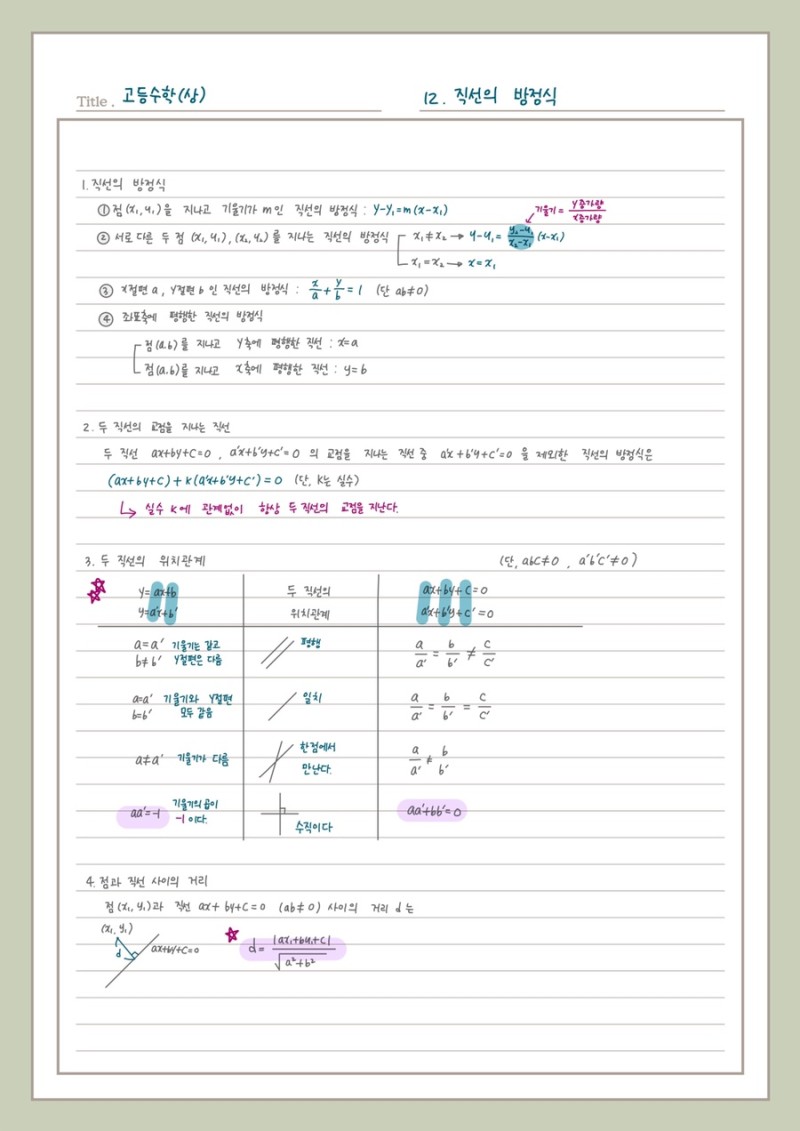 Title. 고등수학(상)
12. 직선의 방정식
1. 직선의 방정식
① 점(x₁, y₁)을 지나고 기울기가 m인 직선의 방정식 : y-y₁=m(x-x₁)
기울기= y증가량/x증가량
② 서로 다른 두 점 (x₁, y₁), (x₂, y₂)를 지나는 직선의 방정식
x₁≠x₂ → y-y₁= (y₂-y₁)/(x₂-x₁) (x-x₁)
x₁=x₂ → x=x₁
③ x절편 a, y절편 b인 직선의 방정식 : x/a + y/b = 1 (단 ab≠0)
④ 좌표축에 평행한 직선의 방정식
점(a,b)를 지나고 y축에 평행한 직선 : x=a
점(a,b)를 지나고 x축에 평행한 직선 : y=b
2. 두 직선의 교점을 지나는 직선
두 직선 ax+by+c=0, a'x+b'y+c'=0 의 교점을 지나는 직선 중 a'x+b'y+c'=0 을 제외한 직선의 방정식은
(ax+by+c)+k(a'x+b'y+c')=0 (단, k는 실수)
↳ 실수 k에 관계없이 항상 두 직선의 교점을 지난다.
3. 두 직선의 위치관계 (단, abc≠0, a'b'c'≠0)
y=ax+b 두 직선의 ax+by+c=0
y=a'x+b' 위치관계 a'x+b'y+c'=0
a=a' 기울기는 같고 평행 a/a' = b/b' ≠ c/c'
b≠b' y절편은 다름
a=a' 기울기와 y절편 일치 a/a' = b/b' = c/c'
b=b' 모두 같음
a≠a' 기울기가 다름 한점에서 a/a' ≠ b/b'
만난다.
aa'=-1 기울기의 곱이 aa'+bb'=0
-1이다. 수직이다
4. 점과 직선 사이의 거리
점(x₁, y₁)과 직선 ax+by+c=0 (ab≠0) 사이의 거리 d는
(x₁, y₁)
d ax+by+c=0 d= |ax₁+by₁+c|/√(a²+b²)